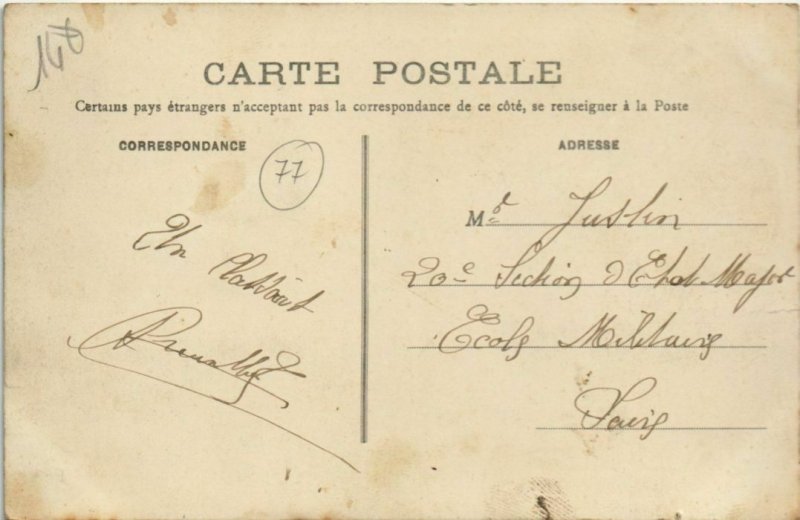 140
CARTE POSTALE
Certains pays étrangers n'acceptant pas la correspondance de ce côté, se renseigner à la Poste
CORRESPONDANCE
77
En
ADRESSE
Mr Justin
20e Section d'Etat Major
Ecole Militaire
Paris